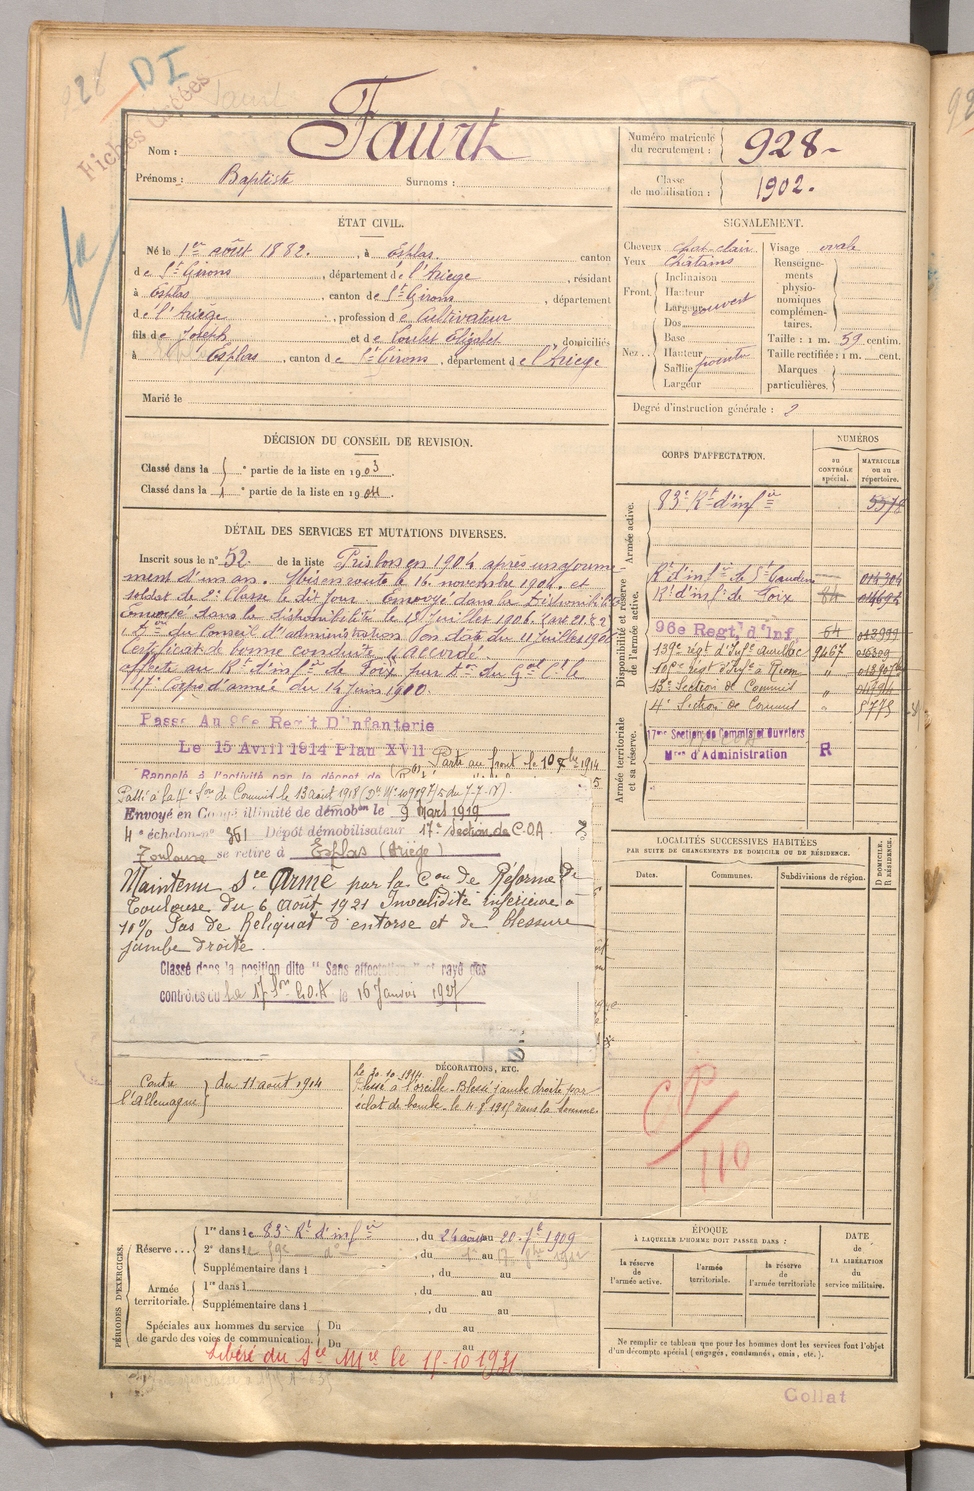 928
DI
Fiches Créées
Nom : Faurt
Prénoms : Baptiste Surnoms :
Numéro matricule du recrutement : 928
Classe de mobilisation : 1902.
ÉTAT CIVIL.
Né le 1er août 1882. , à Esplas canton
de St Girons , département de l'Ariège , résidant
à Esplas , canton de St Girons , département
de l'Ariège , profession de Cultivateur
fils de Joseph et de Élizabet domiciliés
à Esplas , canton de St Girons , département de l'Ariège
Marié le
SIGNALEMENT.
Cheveux chat-clair
Yeux Châtains
Front. Inclinaison
Hauteur
Largeur couvert
Nez. Dos
Base
Hauteur
Saillie pointu
Largeur
Visage ovale
Renseignements physionomiques complémentaires.
Taille : 1 m. 59 centim.
Taille rectifiée : 1 m. cent.
Marques particulières.
Degré d'instruction générale : 2
DÉCISION DU CONSEIL DE REVISION.
Classé dans la e partie de la liste en 1903.
Classé dans la 1 e partie de la liste en 1904.
DÉTAIL DES SERVICES ET MUTATIONS DIVERSES.
Inscrit sous le n° 52 de la liste Prishon en 1904 après un ajourne
ment d'un an. Mis en route le 16 novembre 1904. et
soldat de 2e Classe le dit jour. Envoyé dans la Disponibilité
Envoyé dans la disponibilité le 18 juillet 1906. (art 21 § 2
du Conseil d'administration en date du 11 juillet 1906
Certificat de bonne conduite "Accordé.
affecté au Rt d'infie de Foix par Don du Gal Ct le
17e Corps d'armée du 14 juin 1910.
Passé Au 96e Reg't D'Infanterie
Le 15 Avril 1914 Plan XVII
Parti au front le 10 1914
Rappelé à l'activité par le décret de
Passé à la 4e Son de Commis le 13 août 1918
Envoyé en Congé illimité de démobon le 9 Mars 1919
4e échelon n° 361 Dépôt démobilisateur 17e section de C.O.A.
Toulouse se retire à Esplas (Ariège)
Maintenu Sce Armé par la Con de Réforme de
Toulouse du 6 Août 1921 Invalidité inférieure à
10% Pas de Reliquat d'entorse et de blessure
jambe droite.
Classé dans la position dite "Sans affectation" et rayé des
contrôles du La 17 Son C.O.A le 16 Janvier 1927
CORPS D'AFFECTATION.
NUMÉROS
au CONTRÔLE spécial.
MATRICULE ou au répertoire.
Armée active.
83e Rt d'infie 5578
Disponibilité et réserve de l'armée active.
Rt d'infie de St Gaudens
Rt d'infie de Foix 84
96e Regt d'Inf. 64 013999
139e régt d'Infie aurillac 9467
105e regt d'Infie à Riom "
13e Section de Commis "
4e Section de Commis " 8775
Armée territoriale et sa réserve.
17me Section de Commis et Ouvriers
Mres d'Administration R
LOCALITÉS SUCCESSIVES HABITÉES
PAR SUITE DE CHANGEMENTS DE DOMICILE OU DE RÉSIDENCE.
Dates. Communes. Subdivisions de région. D DOMICILE. R RÉSIDENCE.
CP
110
Contre l'Allemagne } du 11 août 1914
DÉCORATIONS, ETC.
le 30-10-1914.
Blessé à l'oreille - Blessé jambe droite par
éclat de bombe - le 4-8-1915 dans la Somme.
PÉRIODES D'EXERCICES.
Réserve ... 1re dans le 83e Rt d'infie , du 24 août au 1909
2e dans le , du au
Supplémentaire dans l , du au
Armée territoriale. 1re dans l , du au
Supplémentaire dans l , du au
Spéciales aux hommes du service de garde des voies de communication. Du au
Du au
Libéré du Sce Mre le 15-10-1931
ÉPOQUE
À LAQUELLE L'HOMME DOIT PASSER DANS :
la réserve de l'armée active.
l'armée territoriale.
la réserve de l'armée territoriale
DATE de LA LIBÉRATION du service militaire.
Ne remplir ce tableau que pour les hommes dont les services font l'objet
d'un décompte spécial (engagés, condamnés, omis, etc.).
Collat